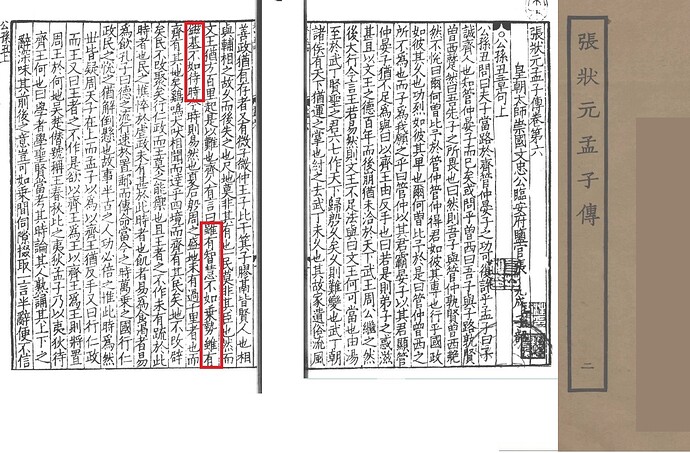 張狀元孟子傳
二
張狀元孟子傳卷第六
皇朝太師崇國文忠公臨安府鹽官張 九成
公孫丑章句上
公孫丑問曰夫子當路於齊管仲晏子之功可復許乎孟子曰子
誠齊人也知管仲晏子而已矣或問乎曾西曰吾子與子路孰賢
曾西蹵然曰吾先子之所畏也曰然則吾子與管仲孰賢曾西艴
然不悅曰爾何曾比予於管仲管仲得君如彼其專也行乎國政
如彼其久也功烈如彼其卑也爾何曾比予於是曰管仲曾西之
所不為也而子為我願之乎曰管仲以其君霸晏子以其君顯管
仲晏子猶不足為與曰以齊王由反手也曰若是則弟子之惑滋
甚且以文王之德百年而後崩猶未洽於天下武王周公繼之然
後大行今言王若易然則文王不足法與曰文王何可當也由湯
至於武丁賢聖之君六七作天下歸殷久矣久則難變也武丁朝
諸侯有天下猶運之掌也紂之去武丁未久也其故家遺俗流風
善政猶有存者又有微子微仲王子比干箕子膠鬲皆賢人也相
與輔相之故久而後失之也尺地莫非其有也一民莫非其臣也然而
文王猶方百里起是以難也齊人有言曰雖有智慧不如乘勢雖有
鎡基不如待時今時則易然也夏后殷周之盛地未有過千里者也而
齊有其地矣雞鳴狗吠相聞而達乎四境而齊有其民矣地不改辟
矣民不改聚矣行仁政而王莫之能禦也且王者之不作未有疏於此
時者也民之憔悴於虐政未有甚於此時者也飢者易為食渴者易
為飲孔子曰德之流行速於置郵而傳命當今之時萬乘之國行仁
政民之悅之猶解倒懸也故事半古之人功必倍之惟此時為然
世皆疑周天子在上而孟子以為以齊王猶反手又曰行仁政
而王又曰王者之不作是欲以齊王為王以齊王為王則將置
周王於何地吳楚僭號稱王春秋狄之夷狄孟子乃以夷狄待
齊王何也曰學者學聖賢當考其時論其人熟誦其上下之
辭深味其前後之意豈可如乘間伺隙掇取一言半辭便不信
公孫丑上